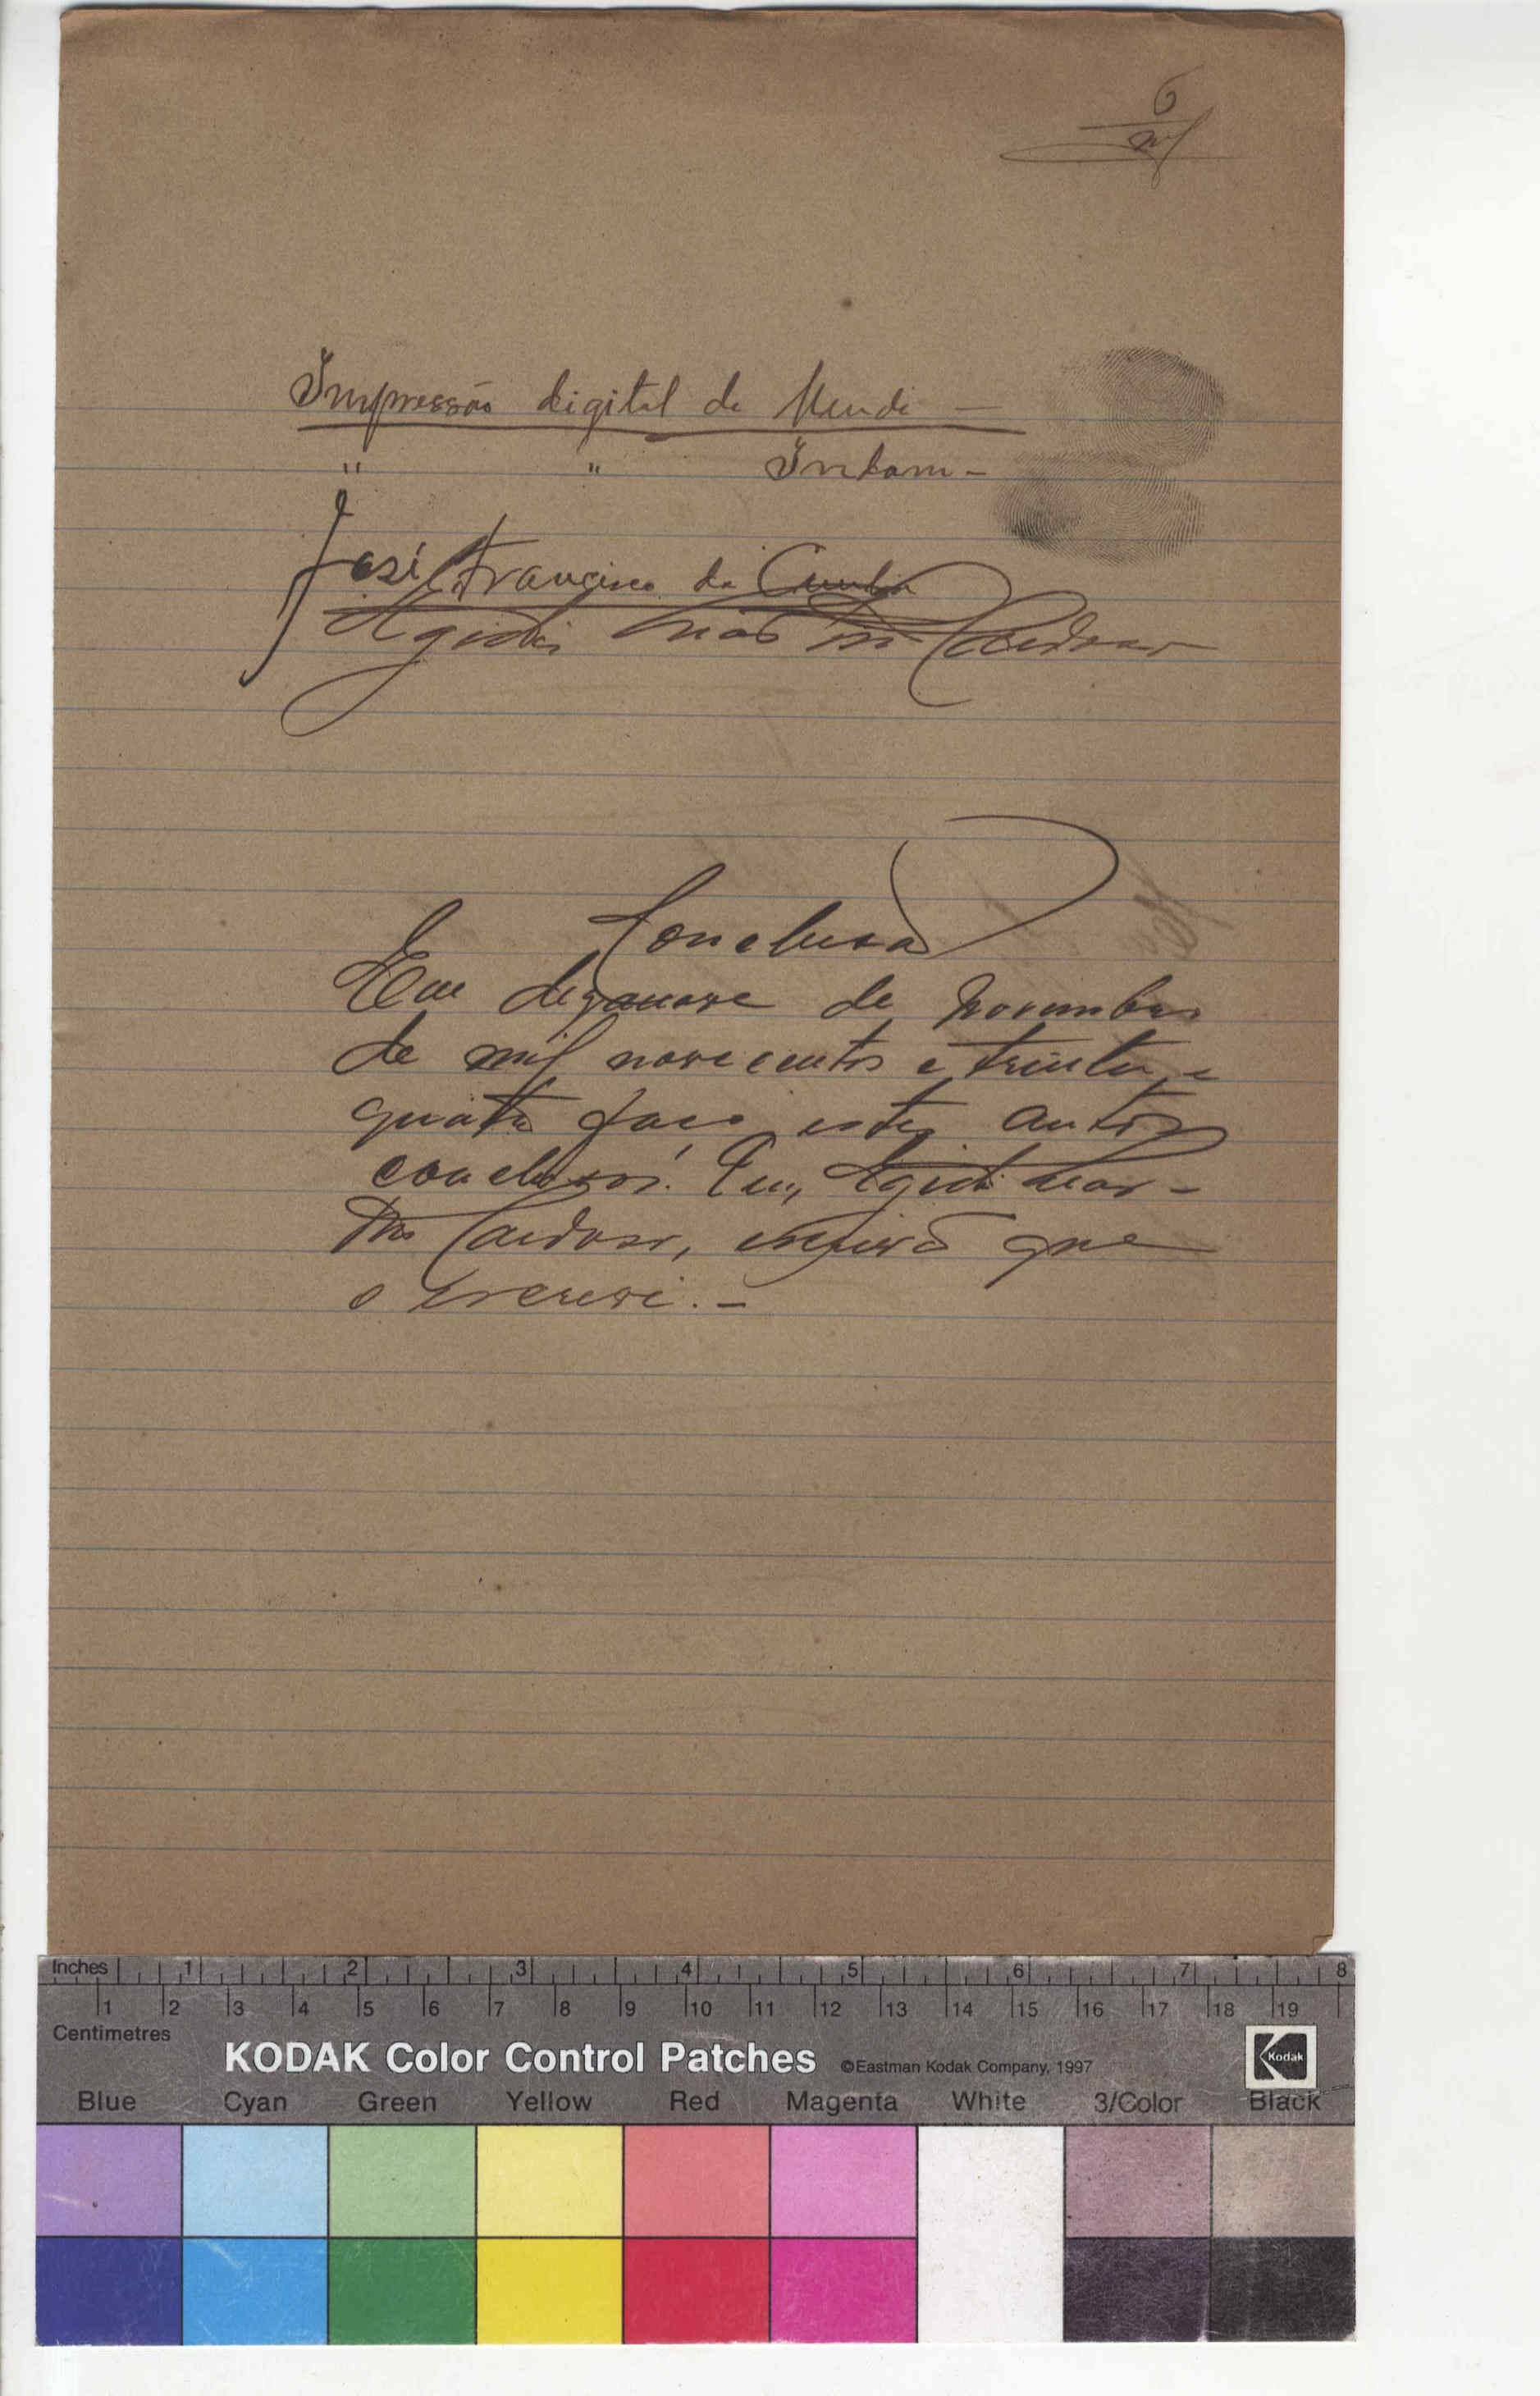 6
Impressão digital de Mendi —
" " Inkam —
José Francisco da Cunha
Egidio Martins Cardoso
Conclusão
Em dezenove de novembro
de mil novecentos e trinta e
quatro faço estes autos
conclusos. Eu, Egidio Mar-
tins Cardoso, escrivão que
o escrevi. —
Inches 1 2 3 4 5 6 7 8
1 2 3 4 5 6 7 8 9 10 11 12 13 14 15 16 17 18 19
Centimetres
KODAK Color Control Patches ©Eastman Kodak Company, 1997 Kodak
Blue Cyan Green Yellow Red Magenta White 3/Color Black